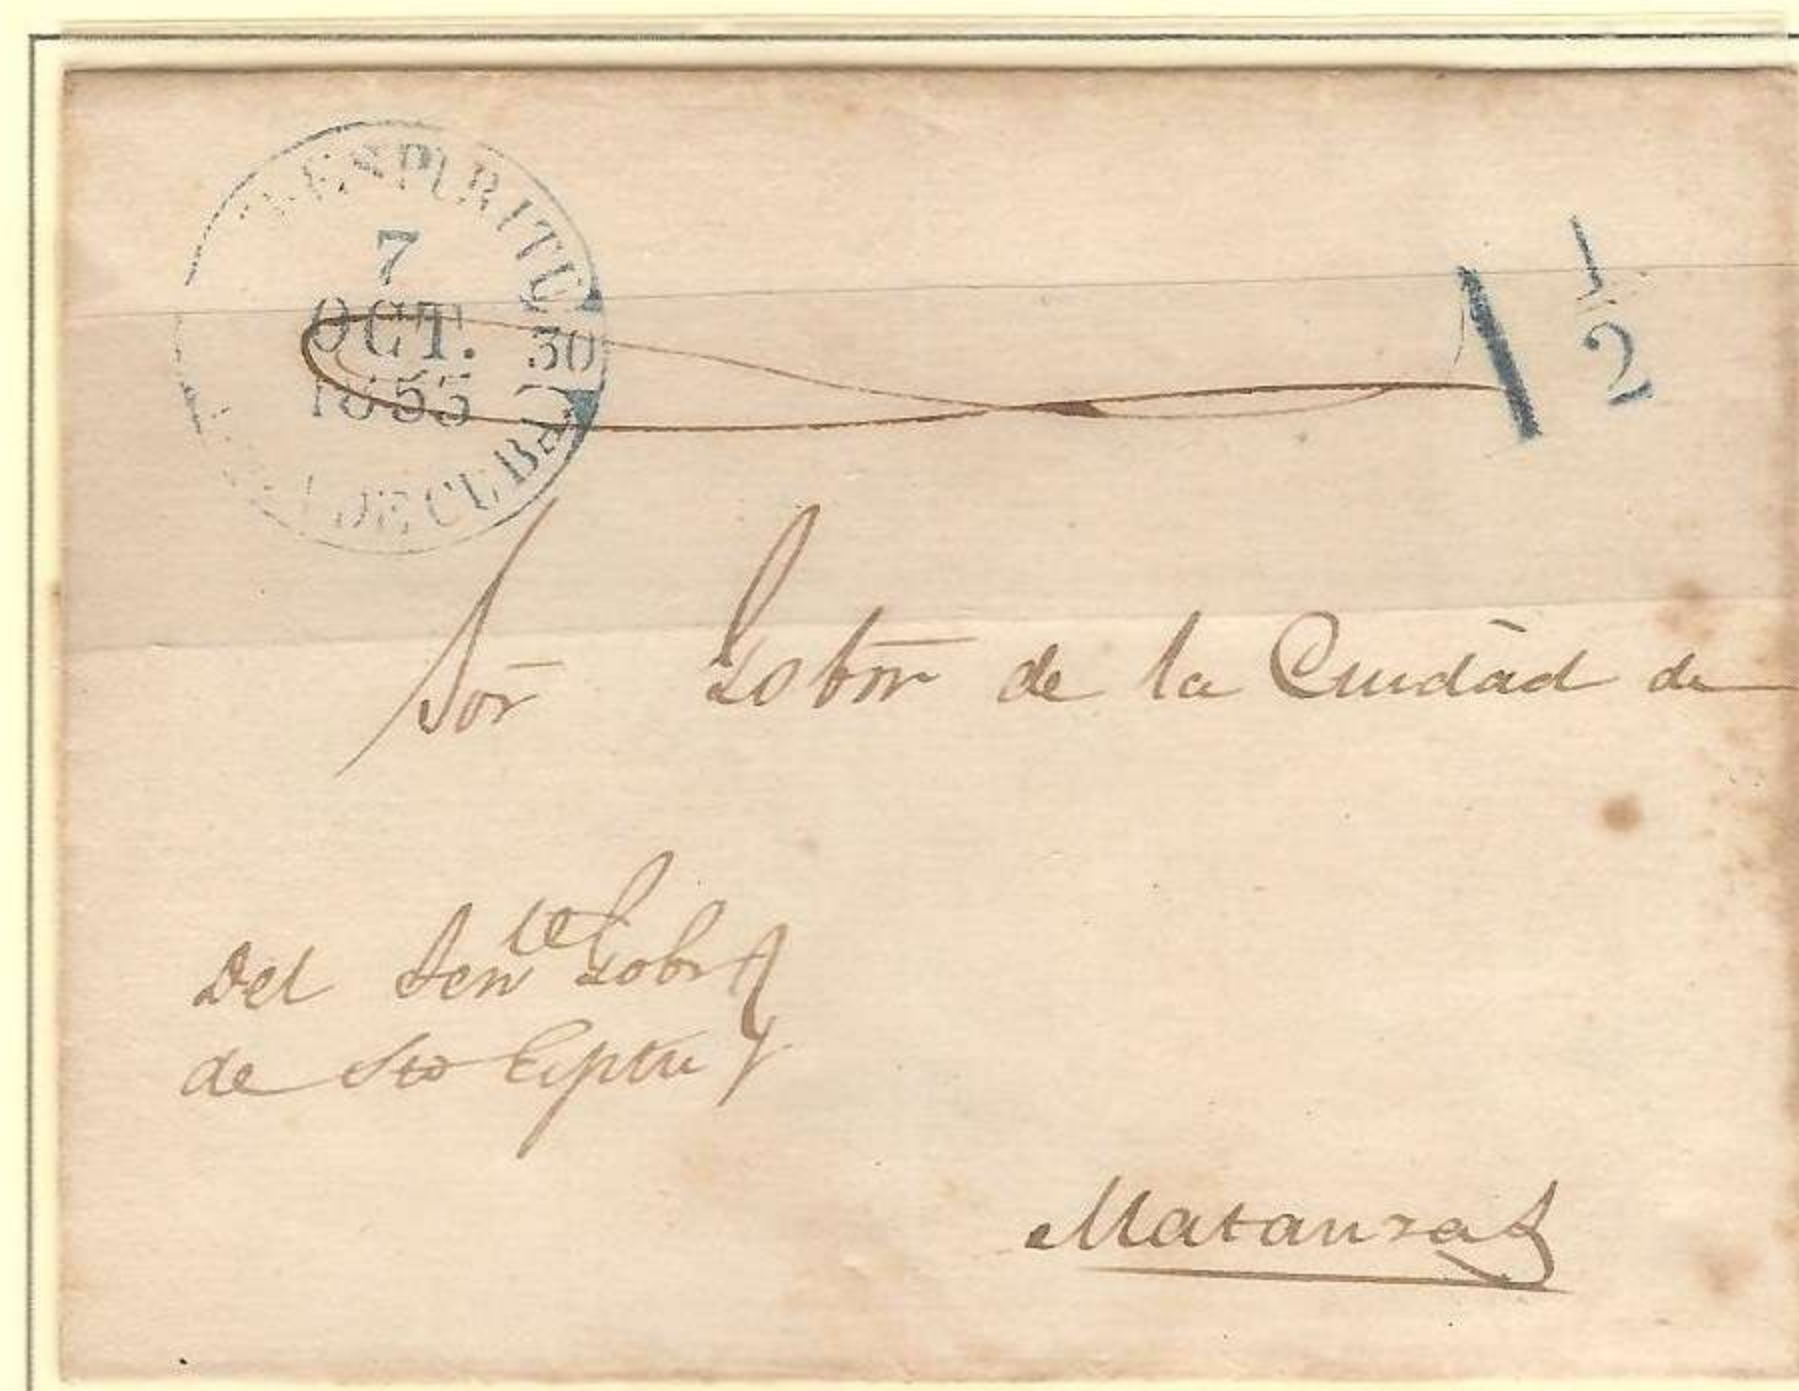 ESPIRITU
7
OCT. 30
1855
DE CUBA
1 1/2
Sor̄ Gobōr de la Ciudad de
Del Ten^te Gobr
de Sto Esptu
Matanzas